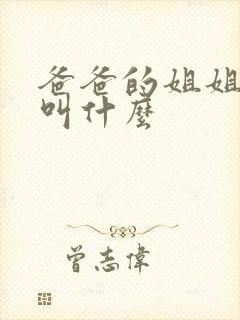 爸爸的姐姐
叫什麼
曾志偉